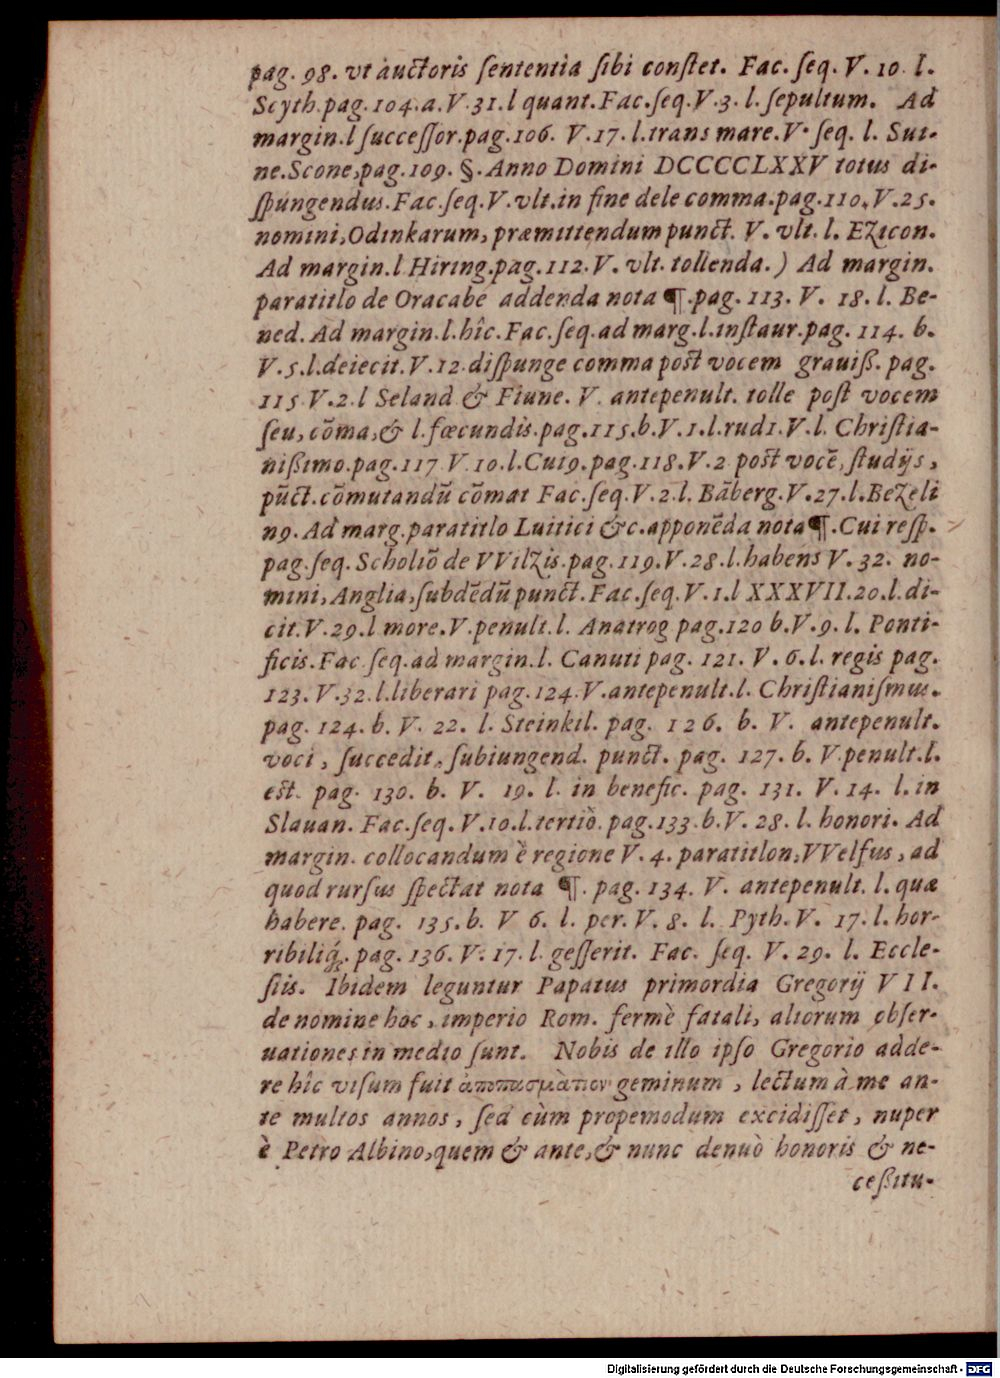 pag. 98. vt auctoris ſententia ſibi conſtet. Fac. ſeq. V. 10. l.
Scyth.pag.104.a.V.31.l quant.Fac.ſeq.V.3.l.ſepultum. Ad
margin.l ſucceſſor.pag.106. V.17.l.trans mare.V. ſeq. l. Sui-
ne.Scone,pag.109. §. Anno Domini DCCCCLXXV totus di-
ſpungendus.Fac.ſeq.V.vlt.in fine dele comma.pag.110.V.25.
nomini,Odinkarum,præmittendum punct. V. vlt. l. Ezicon.
Ad margin.l.Hiring.pag.112.V. vlt. tollenda.) Ad margin.
paratitlo de Oracabe addenda nota ¶.pag. 113. V. 18. l. Be-
ned. Ad margin.l.hîc.Fac.ſeq.ad marg.l.inſtaur.pag. 114. b.
V.5.l.deiecit.V.12.diſpunge comma post vocem grauiß. pag.
115.V.2.l Seland & Fiune. V. antepenult. tolle poſt vocem
ſeu,cõma,& l.fœcundis.pag.115.b.V.1.l.rudi.V.l. Chriſtia-
nißimo.pag.117.V.10.l.Cui9.pag.118.V.2.post vocẽ, ſtudijs,
pũct.cõmutandũ cõmat Fac.ſeq.V.2.l. Bãberg.V.27.l.Bezeli
n9. Ad marg.paratitlo Luitici &c.apponẽda nota ¶.Cui reſp.
pag.ſeq. Scholiõ de VVilzis.pag.119.V.28.l.habens V. 32. no-
mini,Anglia,ſubdẽdũ punct.Fac.ſeq.V.1.l XXXVII.20.l.di-
cit.V.29.l more.V.penult.l. Anatrog pag.120 b.V.9.l. Ponti-
ficis.Fac.ſeq.ad margin.l. Canuti pag. 121. V. 6.l. regis pag.
123. V.32.l.liberari pag.124.V.antepenult.l. Chriſtianiſmus.
pag. 124. b. V. 22. l. Steinkil. pag. 126. b. V. antepenult.
voci, ſuccedit, ſubiungend. punct. pag. 127. b. V.penult.l.
est. pag. 130. b. V. 19. l. in benefic. pag. 131. V. 14. l. in
Slauan. Fac.ſeq.V.10.l.tertiò.pag.133.b.V. 28. l. honori. Ad
margin. collocandum è regione V. 4. paratitlon,VVelfus, ad
quod rurſus ſpectat nota ¶. pag. 134. V. antepenult. l. quæ
habere. pag. 135.b. V 6. l. per. V. 8. l. Pyth. V. 17. l. hor-
ribiliq́;. pag. 136. V. 17. l. geſſerit. Fac. ſeq. V. 29. l. Eccle-
ſiis. Ibidem leguntur Papatus primordia Gregorij VII.
de nomine hoc, imperio Rom. fermè fatali, aliorum obſer-
uationes in medio ſunt. Nobis de illo ipſo Gregorio adde-
re hîc viſum fuit geminum, lectum à me an-
te multos annos, ſed cùm propemodum excidiſſet, nuper
è Petro Albino,quem & ante,& nunc denuò honoris & ne-
ceßitu-
Digitalisierung gefördert durch die Deutsche Forschungsgemeinschaft - DFG